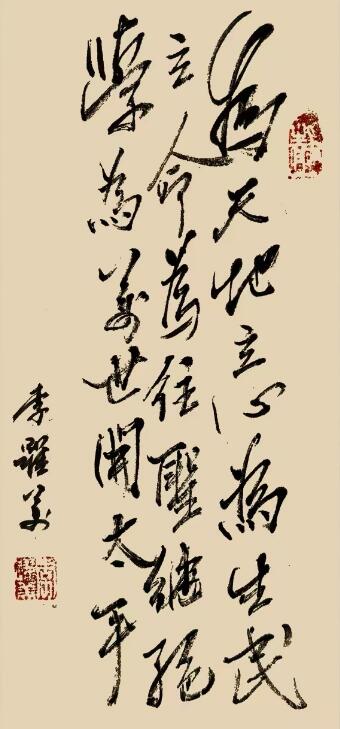 為天地立心為生民
立命為往聖繼絕
學為萬世開太平
李躍華